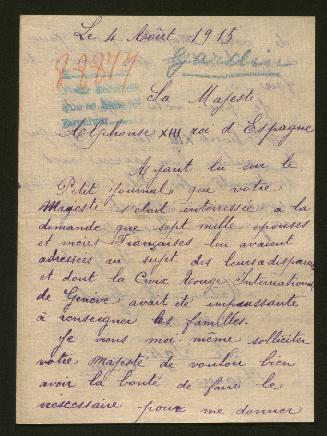 Le 4 Août 1915
88877
Jardin
Sa Majeste
Alphonse XIII roi d'Espagne
Ayant lu sur le
Petit Journal que votre
Majeste s'était interressée à la
demande que sept mille épouses
et meres Françaises lui avaient
adressées au sujet des leurs disparus
et dont la Croix Rouge International
de Genève avait été impuissante
à renseigner les familles.
Je vous moi même solliciter
votre Majesté de vouloir bien
avoir la bonté de faire le
nescessaire pour me donner